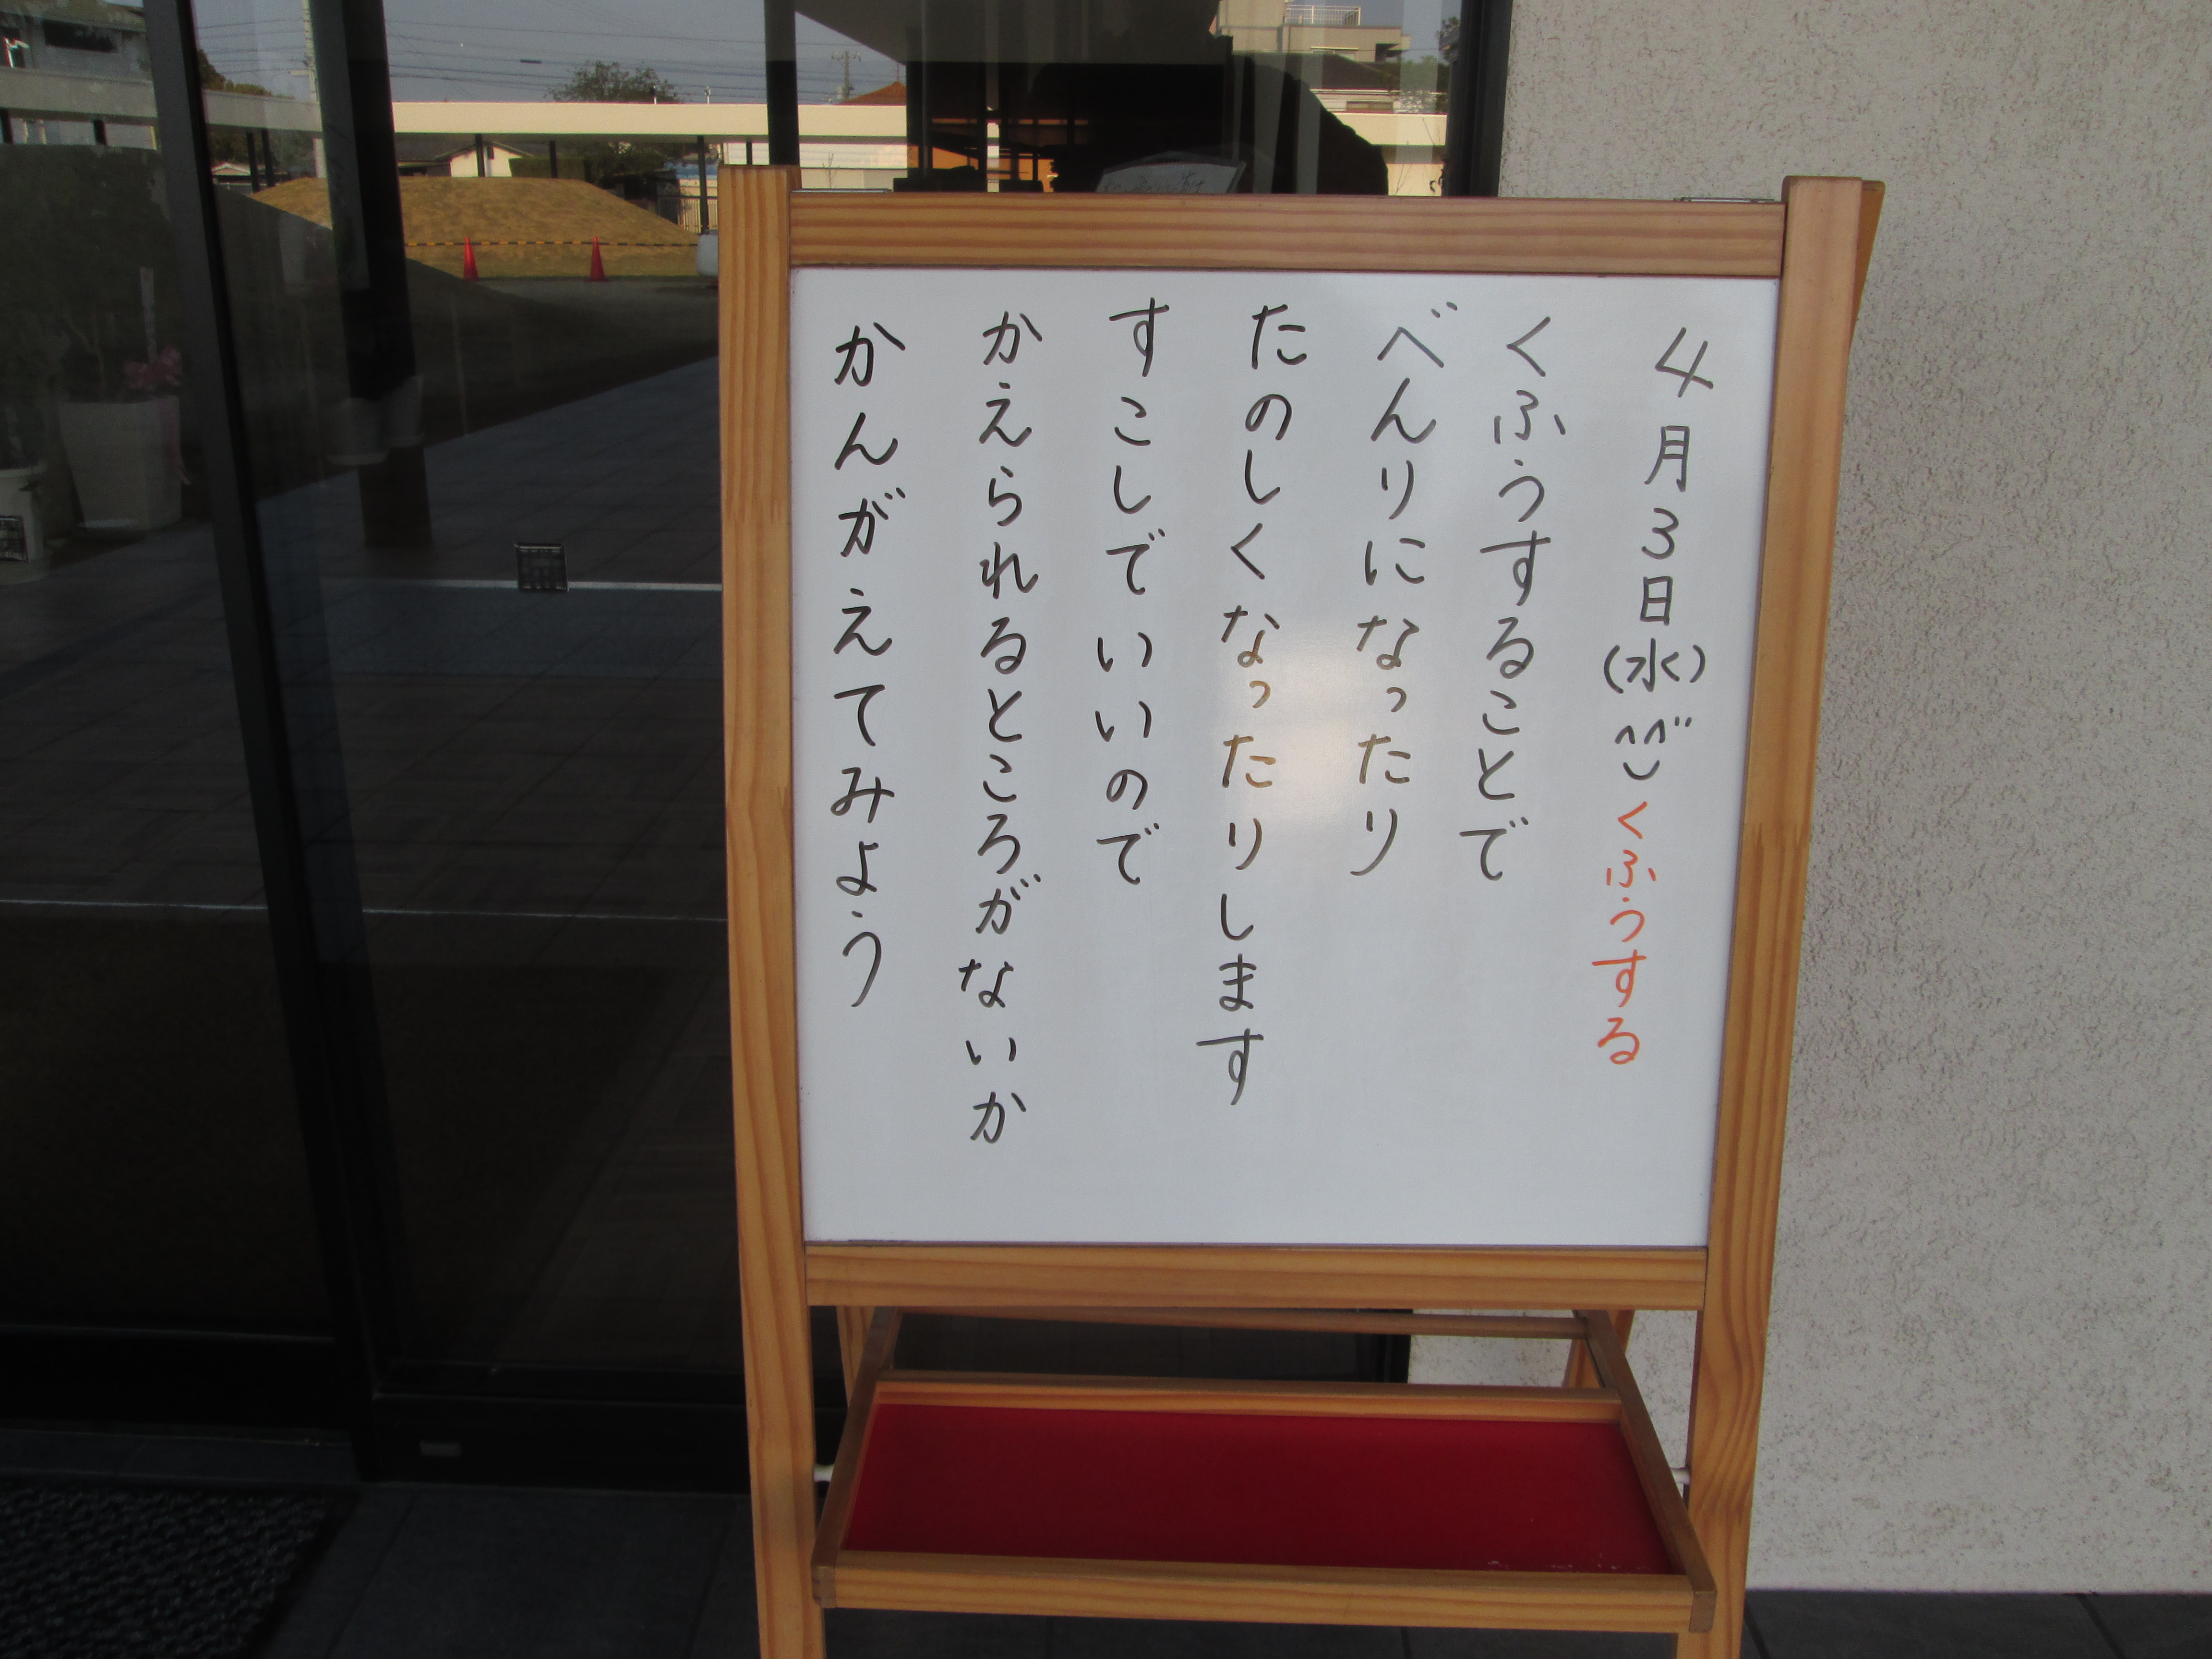 4月3日(水)^^"くふうする
くふうすることで
べんりになったり
たのしくなったりします
すこしでいいので
かえられるところがないか
かんがえてみよう